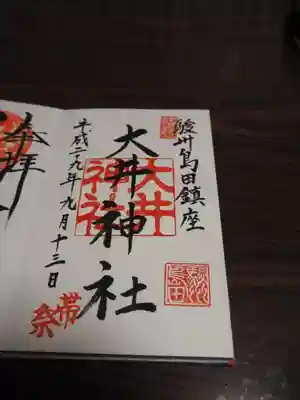 駿州島田鎮座
大井神社
大井
神社
平成二十九年九月十三日
帯祭
参拝